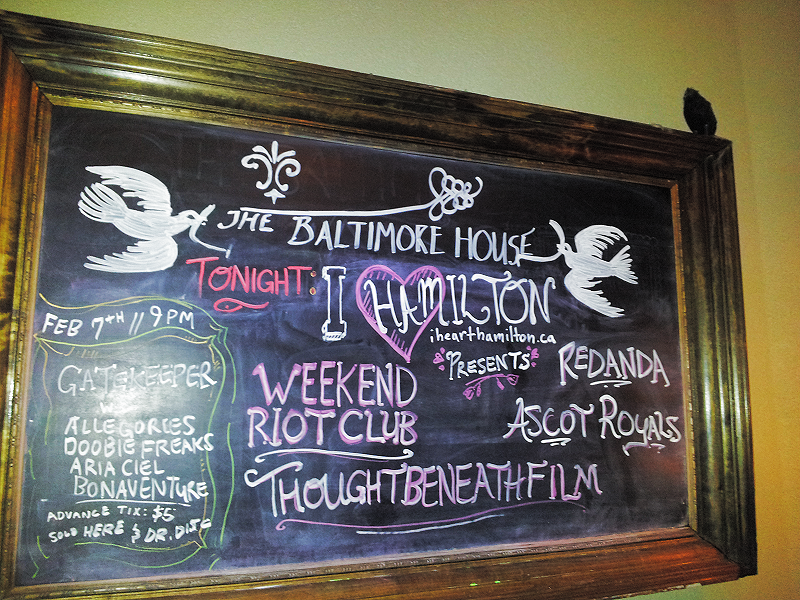 THE BALTIMORE HOUSE
TONIGHT: I HAMILTON
ihearthamilton.ca
PRESENTS
WEEKEND
RIOT CLUB
THOUGHTBENEATHFILM
REDANDA
ASCOT ROYALS
FEB 7TH // 9PM
GATEKEEPER
W
ALLEGORIES
DOOBIE FREAKS
ARIA CIEL
BONAVENTURE
ADVANCE TIX: $5
SOLD HERE & DR. DISC